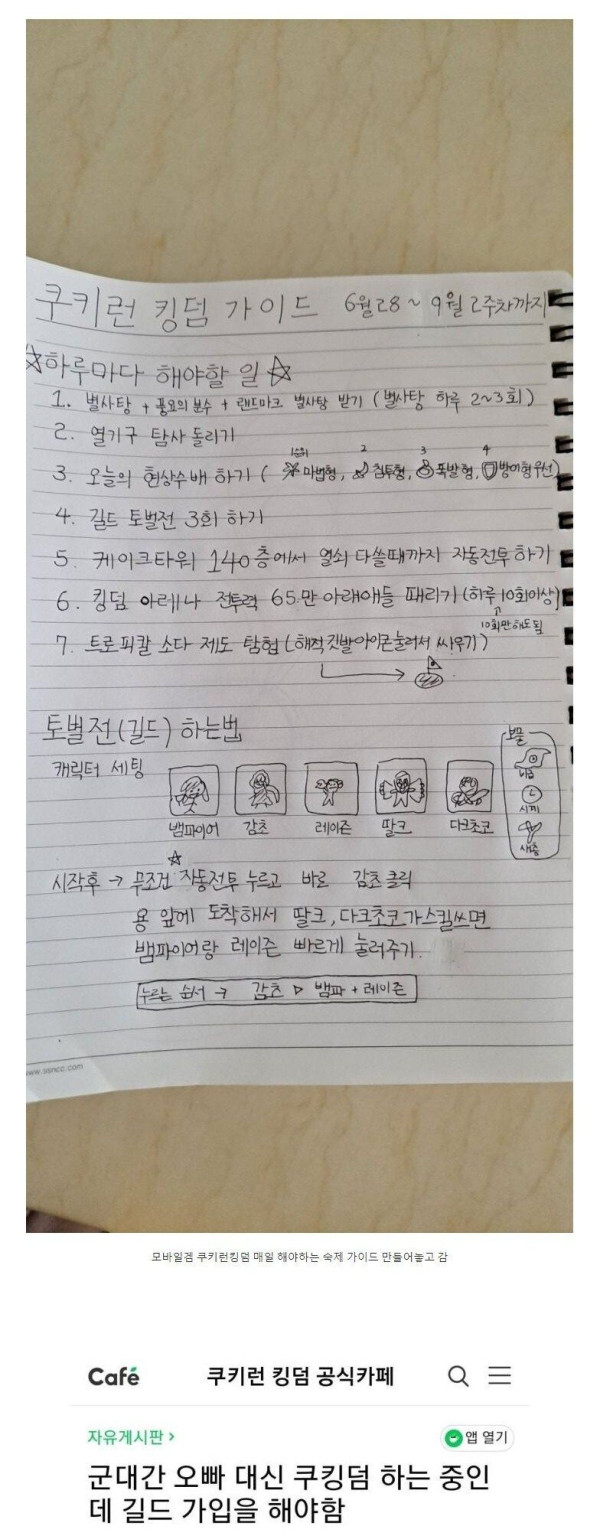 쿠키런 킹덤 가이드 6월28 ~ 9월 2주차까지
☆하루마다 해야할 일☆
1. 별사탕 + 풍요의 분수 + 랜드마크 별사탕 받기 (별사탕 하루 2~3회)
2. 열기구 탐사 돌리기
3. 오늘의 현상수배 하기 ( 1순위 마법형, 2 침투형, 3 폭발형, 4 방어형 우선)
4. 길드 토벌전 3회 하기
5. 케이크타워 140층에서 열쇠 다쓸때까지 자동전투 하기
6. 킹덤 아레나 전투력 65만 아래애들 때리기 (하루 10회이상)
10회만해도됨
7. 트로피칼 소다 제도 탐험 (해적깃발아이콘눌러서 싸우기)
토벌전(길드) 하는법
보물
캐릭터 세팅
뱀파이어 감초 레이즌 딸크 다크초코
시끼
새총
시작후 → 무조건 ☆자동전투 누르고 바로 감초 클릭
용 앞에 도착해서 딸크, 다크초코가스킬쓰면
뱀파이어랑 레이즌 빠르게 눌러주기.
누르는 순서 → 감초 ▷ 뱀파 + 레이즌
www.ssncc.com
모바일겜 쿠키런킹덤 매일 해야하는 숙제 가이드 만들어놓고 감
Café 쿠키런 킹덤 공식카페
자유게시판 >
앱 열기
군대간 오빠 대신 쿠킹덤 하는 중인
데 길드 가입을 해야함